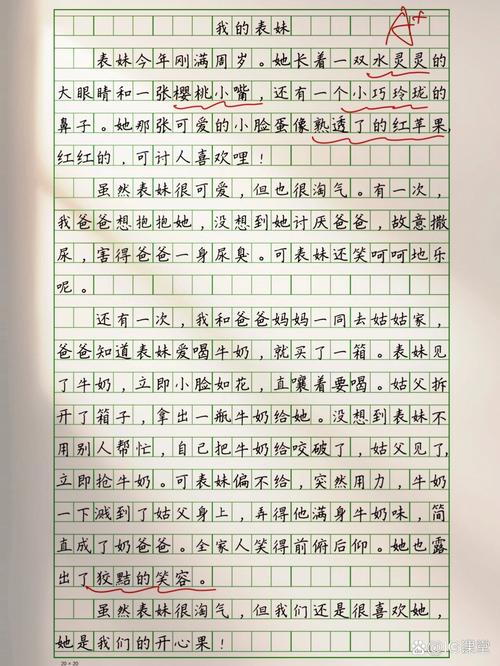 我的表妹
A+
表妹今年刚满周岁。她长着一双水灵灵的
大眼睛和一张樱桃小嘴,还有一个小巧玲珑的
鼻子。她那张可爱的小脸蛋像熟透了的红苹果,
红红的,可讨人喜欢哩!
虽然表妹很可爱,但也很淘气。有一次,
我爸爸想抱抱她,没想到她讨厌爸爸,故意撒
尿,害得爸爸一身尿臭。可表妹还笑呵呵地乐
呢。
还有一次,我和爸爸妈妈一同去姑姑家,
爸爸知道表妹爱喝牛奶,就买了一箱。表妹见
了牛奶,立即小脸如花,直嚷着要喝。姑父拆
开了箱子,拿出一瓶牛奶给她。没想到表妹不
用别人帮忙,自己把牛奶给咬破了,姑父见了,
立即抢牛奶。可表妹偏不给,突然用力,牛奶
一下溅到了姑父身上,弄得他满身牛奶味,简
直成了奶爸爸。全家人笑得前俯后仰。她也露
出了狡黠的笑容。
虽然表妹很淘气,但我们还是很喜欢她,
她是我们的开心果!
20×20